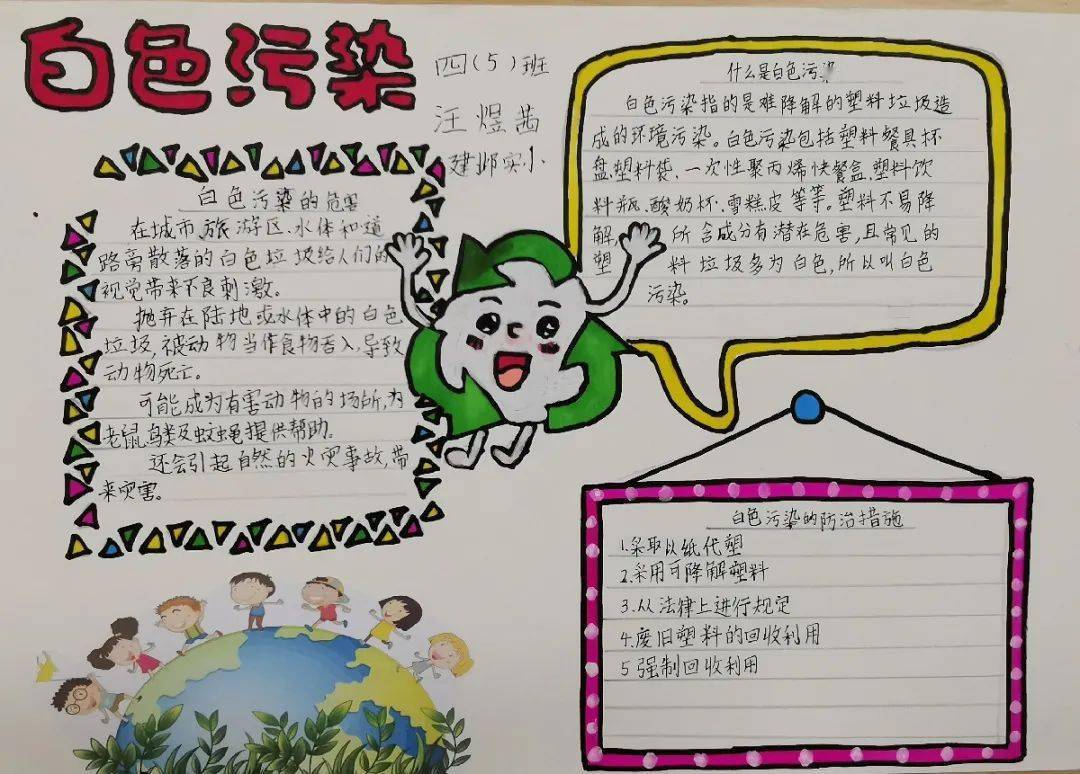 白色污染
四(5)班
汪煜茜
建邺实小
白色污染的危害
在城市、旅游区、水体和道
路旁散落的白色垃圾给人们的
视觉带来不良刺激。
抛弃在陆地或水体中的白色
垃圾,被动物当作食物吞入,导致
动物死亡。
可能成为有害动物的场所,为
老鼠鸟类及蚊蝇提供帮助。
还会引起自然的火灾事故,带
来灾害。
什么是白色污染
白色污染指的是难降解的塑料垃圾造
成的环境污染。白色污染包括塑料餐具杯
盘.塑料袋、一次性聚丙烯快餐盒.塑料饮
料瓶.酸奶杯.雪糕皮等等。塑料不易降
解,所含成分有潜在危害,且常见的
塑料垃圾多为白色,所以叫白色
污染。
白色污染的防治措施
1.采取以纸代塑
2.采用可降解塑料
3.从法律上进行规定
4.废旧塑料的回收利用
5强制回收利用